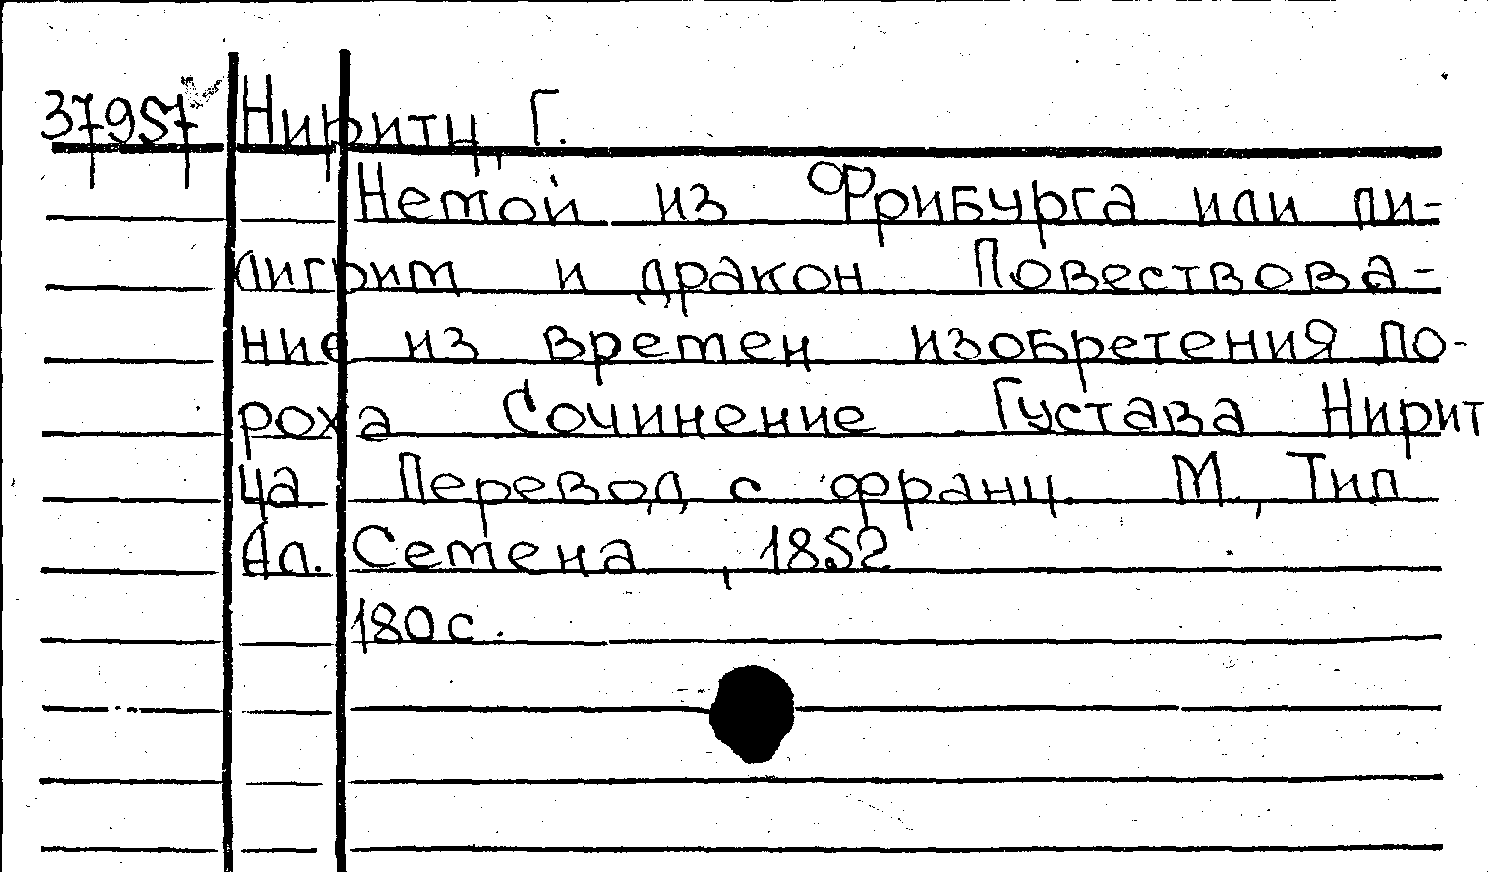 37957 Ниритц, Г.
Немой из Фрибурга или пи-
лигрим и дракон Повествова-
ние из времен изобретения по-
роха Сочинение Густава Нирит
ца Перевод с франц. М., Тип
Ал. Семена, 1852
180 с.